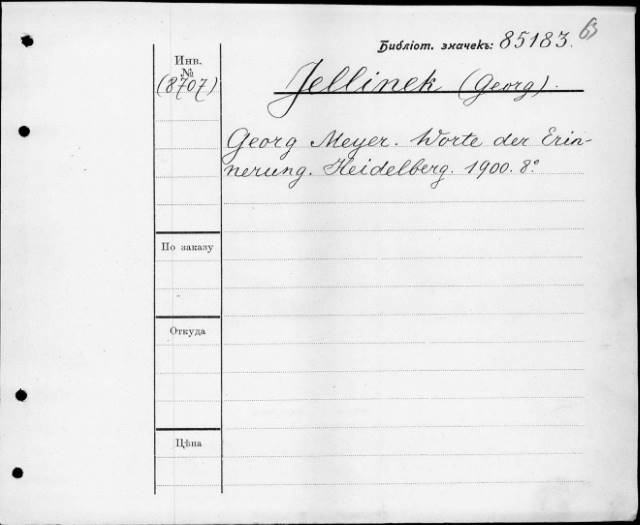 Библіот. значекъ: 85183. 63
Инв.
№
(8707)
Jellinek (Georg).
Georg Meyer. Worte der Erin-
nerung. Heidelberg. 1900. 8º
По заказу
Откуда
Цѣна